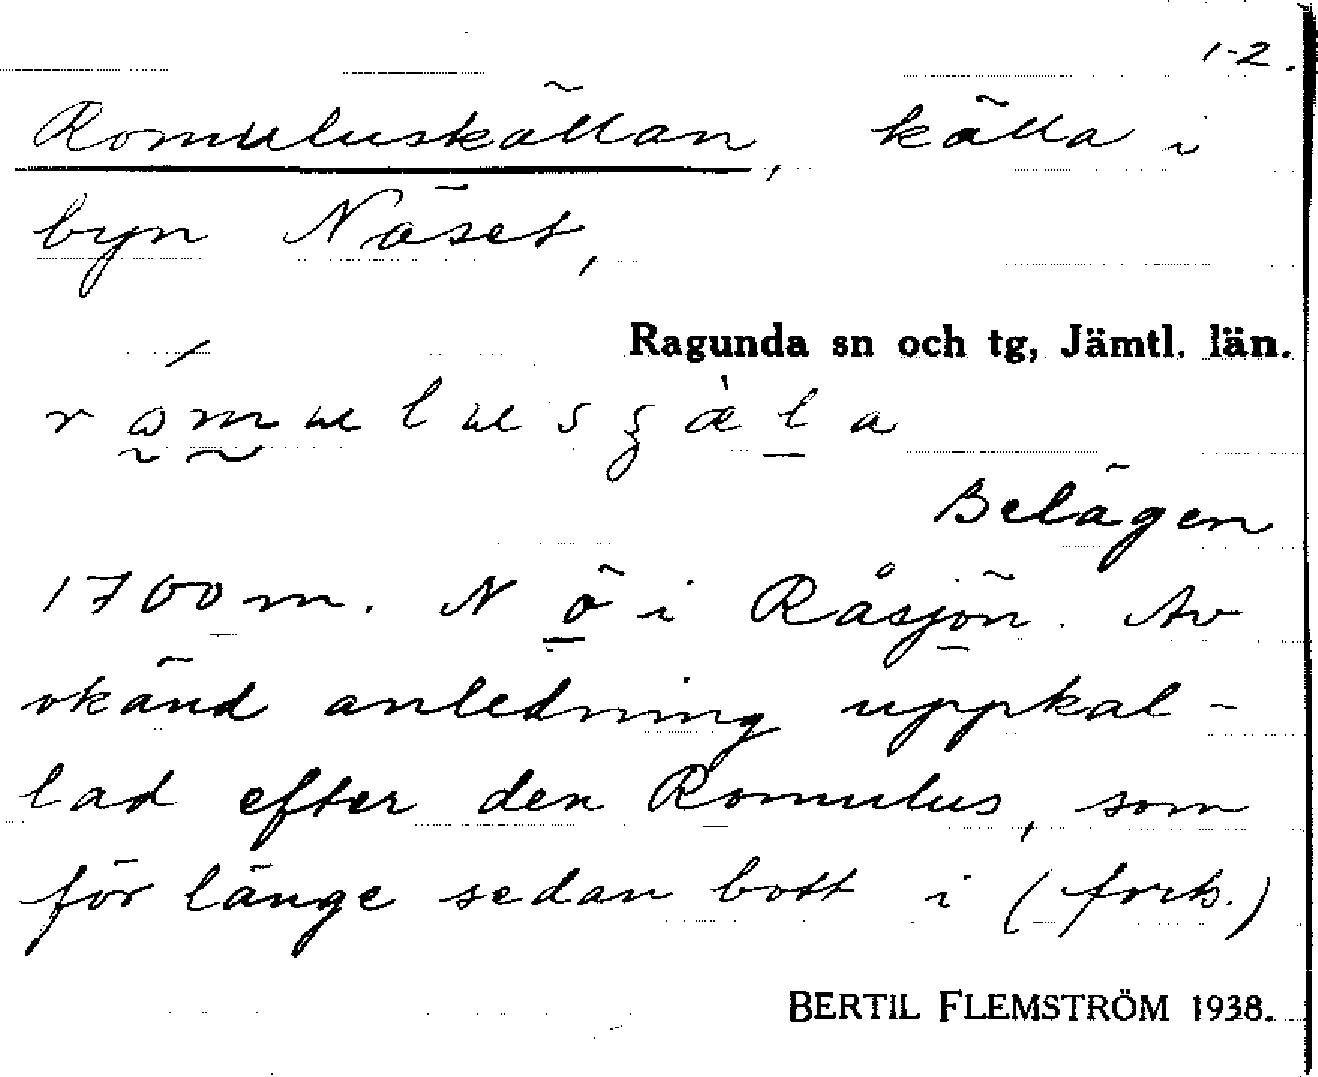 1-2.
Romuluskällan, källa i
byn Näset,
Ragunda sn och tg, Jämtl. län.
Belägen
1700 m. N ö i Råsjön. Av
okänd anledning uppkal-
lad efter den Romulus, som
för länge sedan bott i (forts.)
BERTIL FLEMSTRÖM 1938.